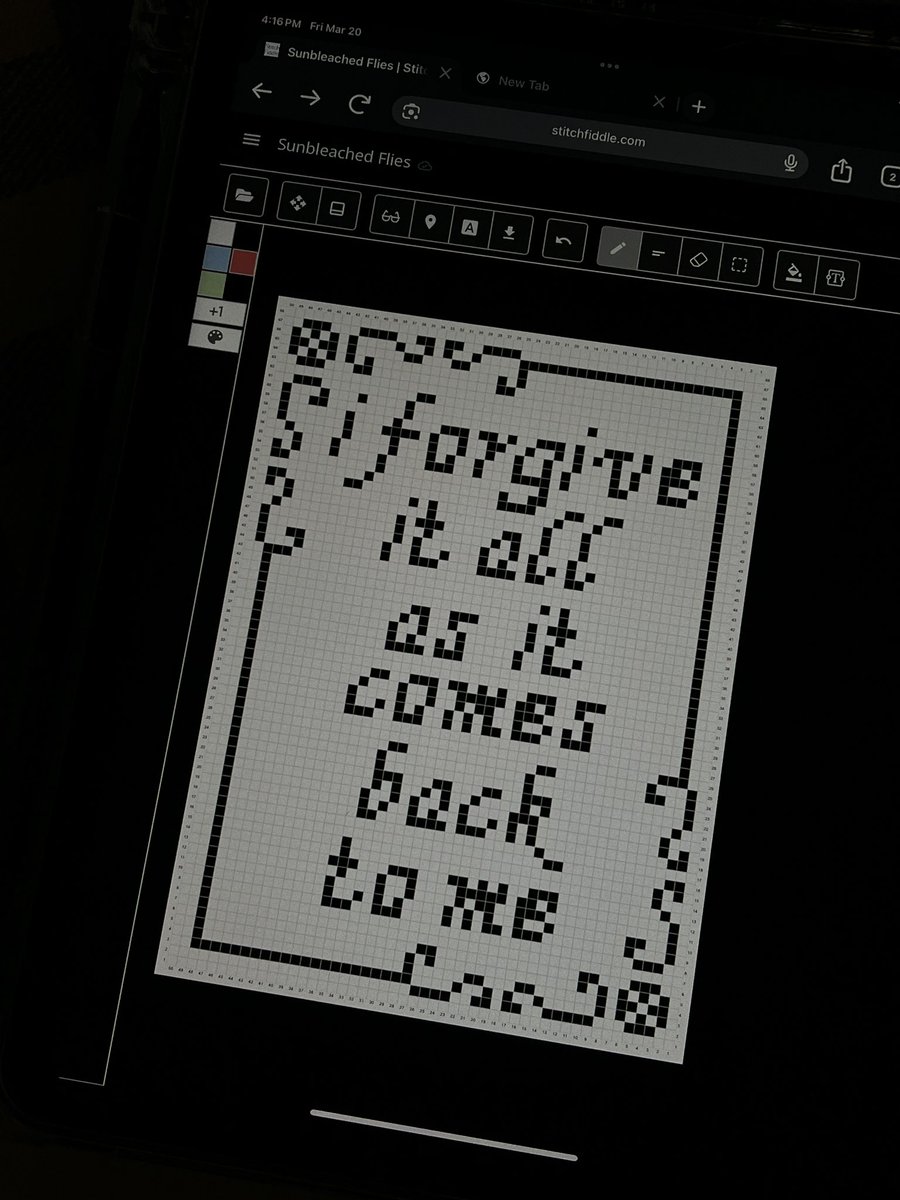 4:16 PM Fri Mar 20
Sunbleached Flies | Stit
New Tab
stitchfiddle.com
2
Sunbleached Flies
A
T
+1
i forgive
it all
as it
comes
back
to me